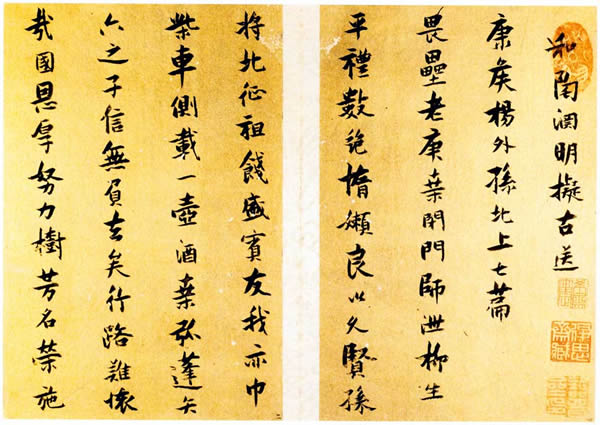 和陶淵明擬古送
康矦楊外孫北上七篇
畏壘老庚桒閉門師泄柳生
平禮數絶惰嬾良以久賢孫
將北征祖餞盛賓友我亦巾
柴車側載一壺酒桒弧蓬矢
六之子信無負去矣行路難懷
哉國恩厚努力樹芳名榮施